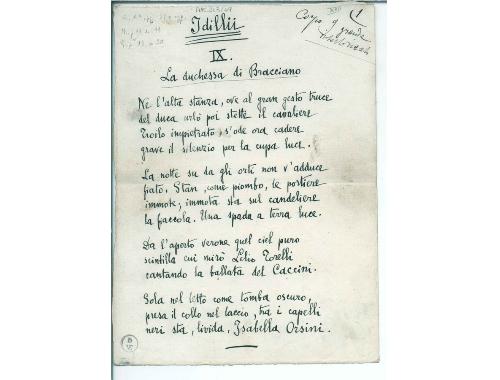 Idillii
1
Corpo 9
IX.
La duchessa di Bracciano
Ne l'alta stanza, ove al gran gesto truce
del duca urlò poi stette il cavaliere
Troilo impietrato, s'ode ora cadere
grave il silenzio per la cupa luce.
La notte su da gli orti non v'adduce
fiato. Stan, come piombo, le portiere
immote, immota sta sul candeliere
la fiaccola. Una spada a terra luce.
Da l'aperto verone quel ciel puro
scintilla cui mirò Lelio Torelli
cantando la ballata del Caccini.
Sola nel letto come tomba oscuro,
presa il collo nel laccio, tra i capelli
neri sta, livida, Isabella Orsini.